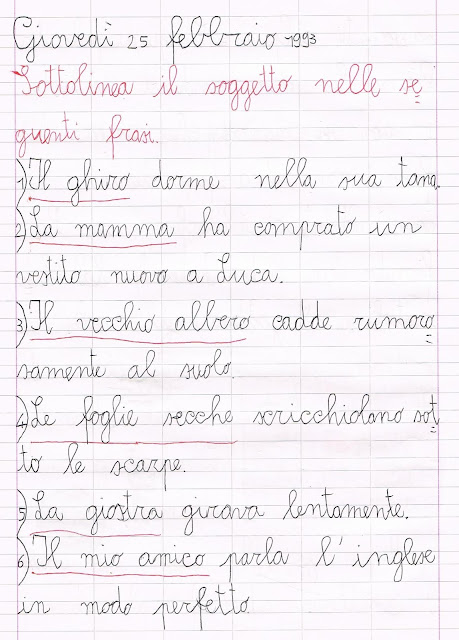 Giovedì 25 febbraio 1993
Sottolinea il soggetto nelle se
guenti frasi.
1) Il ghiro dorme nella sua tana.
2) La mamma ha comprato un
vestito nuovo a Luca.
3) Il vecchio albero cadde rumoro
samente al suolo.
4) Le foglie secche scricchiolano sot
to le scarpe.
5) La giostra girava lentamente.
6) Il mio amico parla l'inglese
in modo perfetto